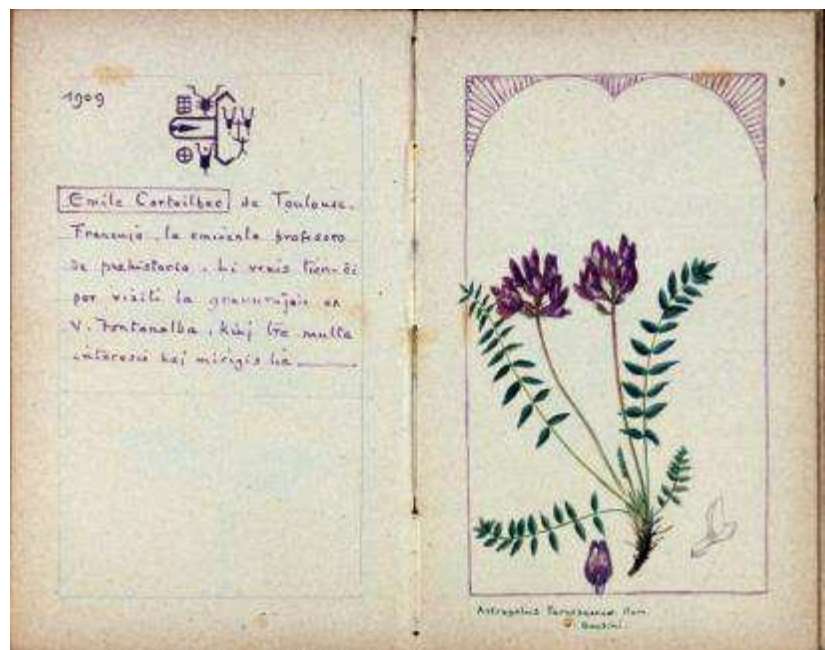 1909
Emile Cartailhac de Toulouse.
Francujo, la eminenta profesoro
de prehistorio. Li venis tien-ĉi
por viziti la gravurajoin en
V. Fontanalba, kiuj tre multe
interesis kaj mirigis lin
Astragalus